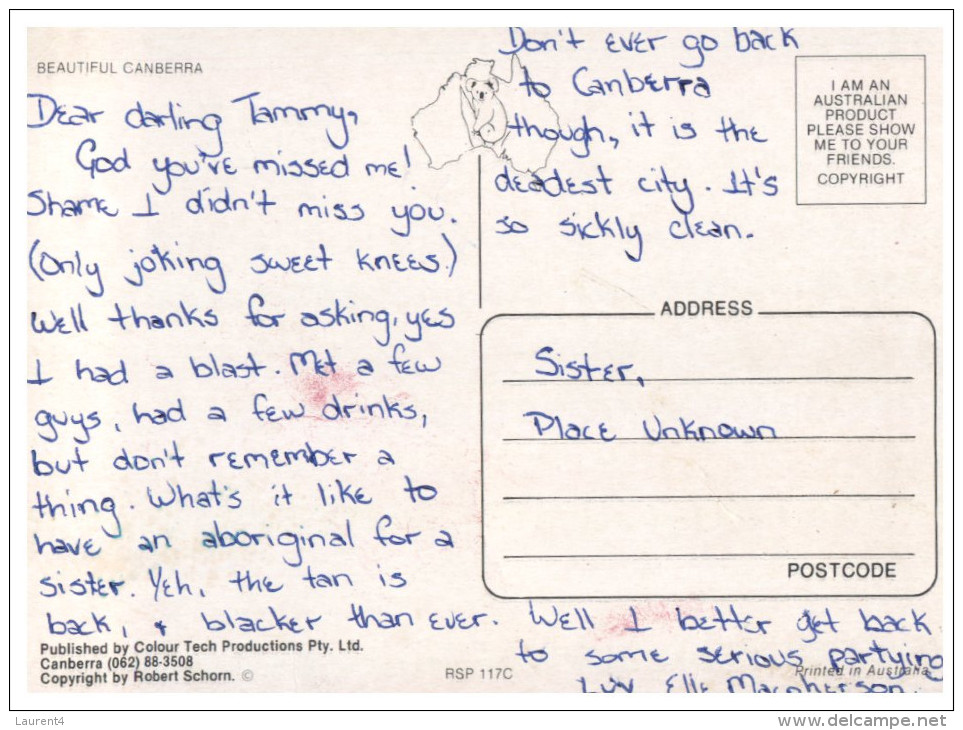 BEAUTIFUL CANBERRA
Dear darling Tammy,
God you've missed me!
Shame I didn't miss you.
(Only joking sweet knees.)
Well thanks for asking, yes
I had a blast. Met a few
guys, had a few drinks,
but don't remember a
thing. What's it like to
have an aboriginal for a
sister. Yeh, the tan is
back, & blacker than ever. Well I better get back
to some serious partying
Luv Elle Macpherson.
Don't ever go back
to Canberra
though, it is the
deadest city. It's
so sickly clean.
I AM AN
AUSTRALIAN
PRODUCT
PLEASE SHOW
ME TO YOUR
FRIENDS.
COPYRIGHT
ADDRESS
Sister,
Place Unknown
POSTCODE
Published by Colour Tech Productions Pty. Ltd.
Canberra (062) 88-3508
Copyright by Robert Schorn. ©
RSP 117C
Printed in Australia
Laurent4
www.delcampe.net